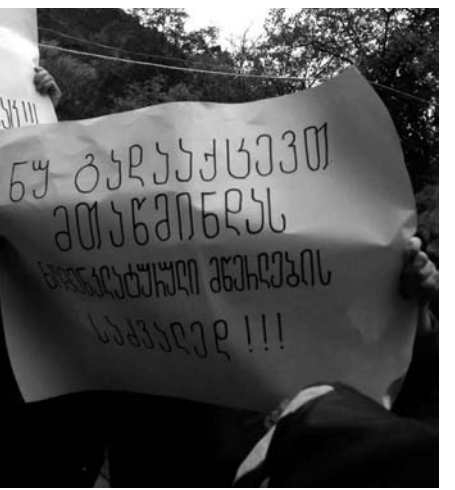 ნუ გადააქცევთ
მთაწმინდას
ნომენკლატურული მწერლების
საძვალედ !!!